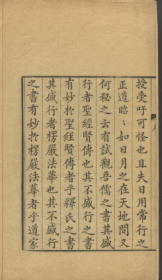 授受吁可怪也且夫日用常行之
正道㬱㬱如日月之在天地間又
何秘之云有試觀吾儒之書其盛
行者聖經賢傳也其不盛行之書
有妙於聖經賢傳者乎釋氏之書
其盛行者楞嚴法華也其不盛行
之書有妙於楞嚴法華者乎道家